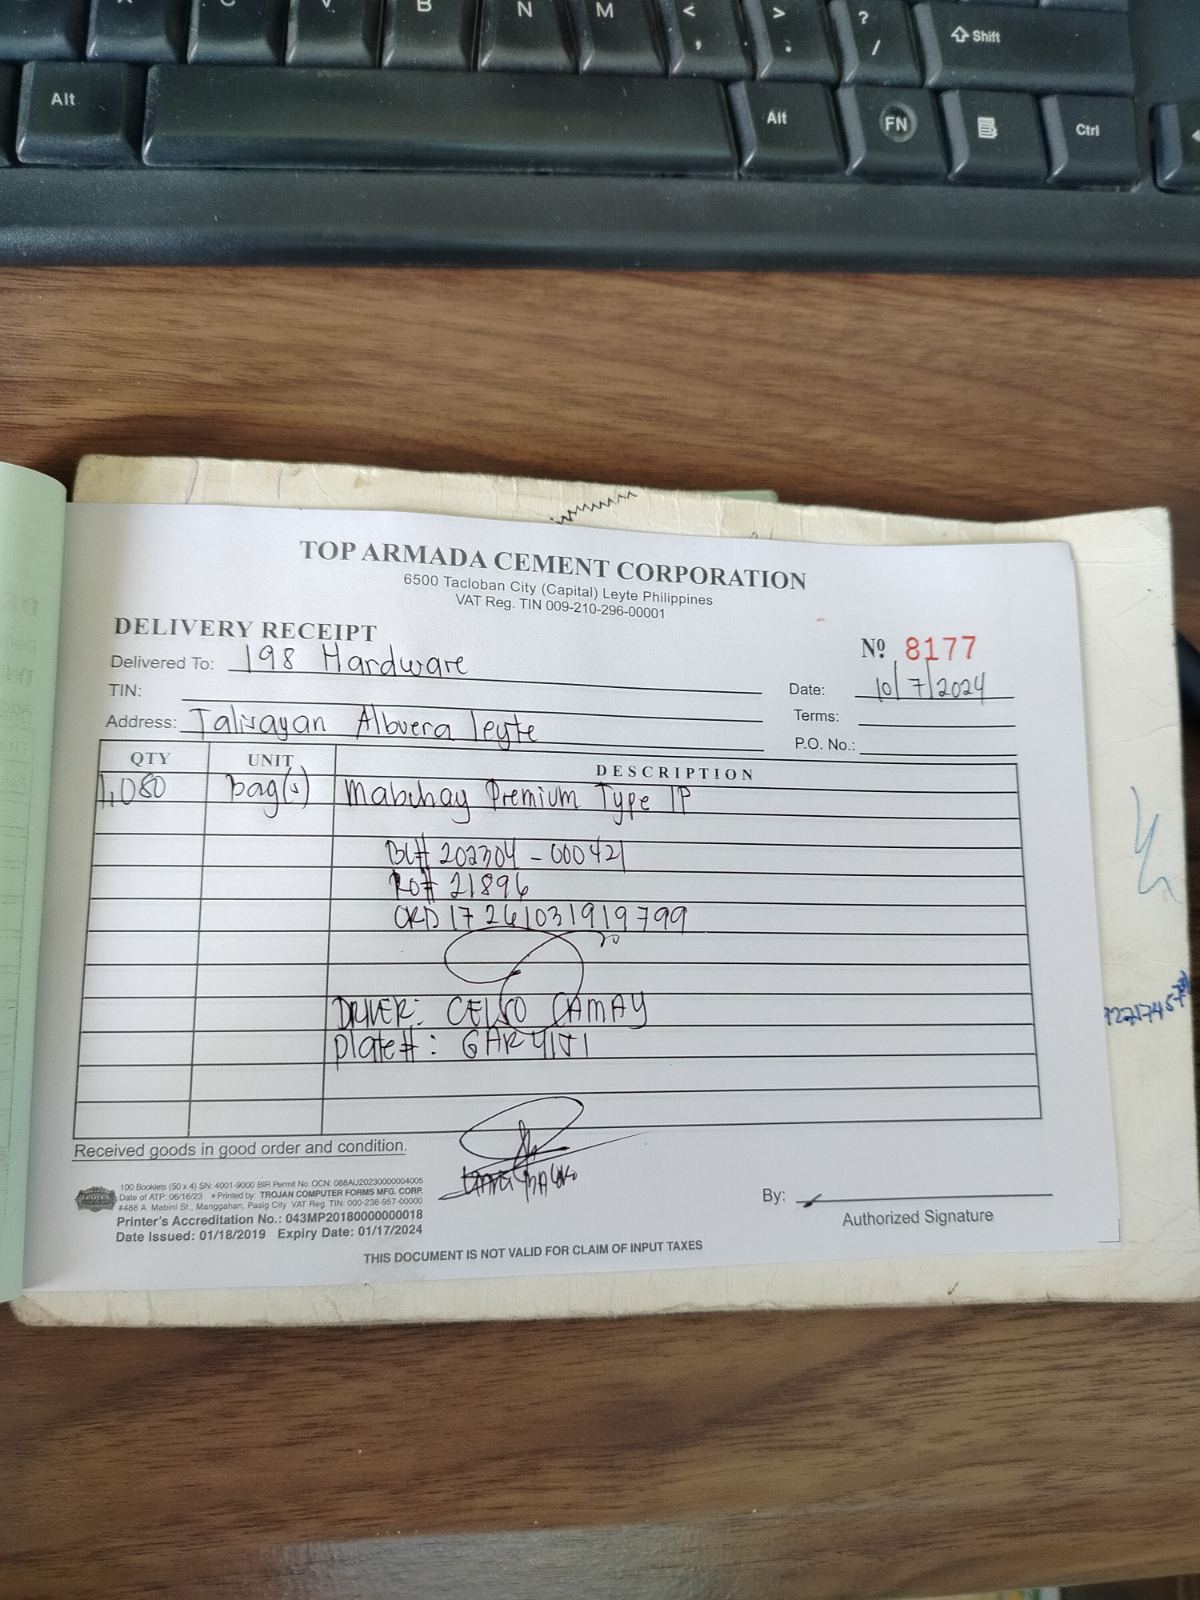 B N M < , > . ? / Shift
Alt Alt FN Ctrl
TOP ARMADA CEMENT CORPORATION
6500 Tacloban City (Capital) Leyte Philippines
VAT Reg. TIN 009-210-296-00001
DELIVERY RECEIPT
Nº 8177
Delivered To: 198 Hardware
Date: 10/7/2024
TIN:
Terms:
Address: Talisayan Albuera leyte
P.O. No.:
QTY UNIT DESCRIPTION
1,080 bag(s) Mabuhay Premium Type 1P
BL# 202304-000421
RO# 21896
ORD 17261031919799
DRIVER: CELSO CAMAY
Plate#:
Received goods in good order and condition.
100 Booklets (50 x 4) SN: 4001-9000 BIR Permit No. OCN: 088AU20230000004005
Date of ATP: 06/16/23 • Printed by: TROJAN COMPUTER FORMS MFG. CORP.
#488 A. Mabini St., Manggahan, Pasig City VAT Reg. TIN: 000-238-957-00000
Printer's Accreditation No.: 043MP20180000000018
Date Issued: 01/18/2019 Expiry Date: 01/17/2024
By:
Authorized Signature
THIS DOCUMENT IS NOT VALID FOR CLAIM OF INPUT TAXES